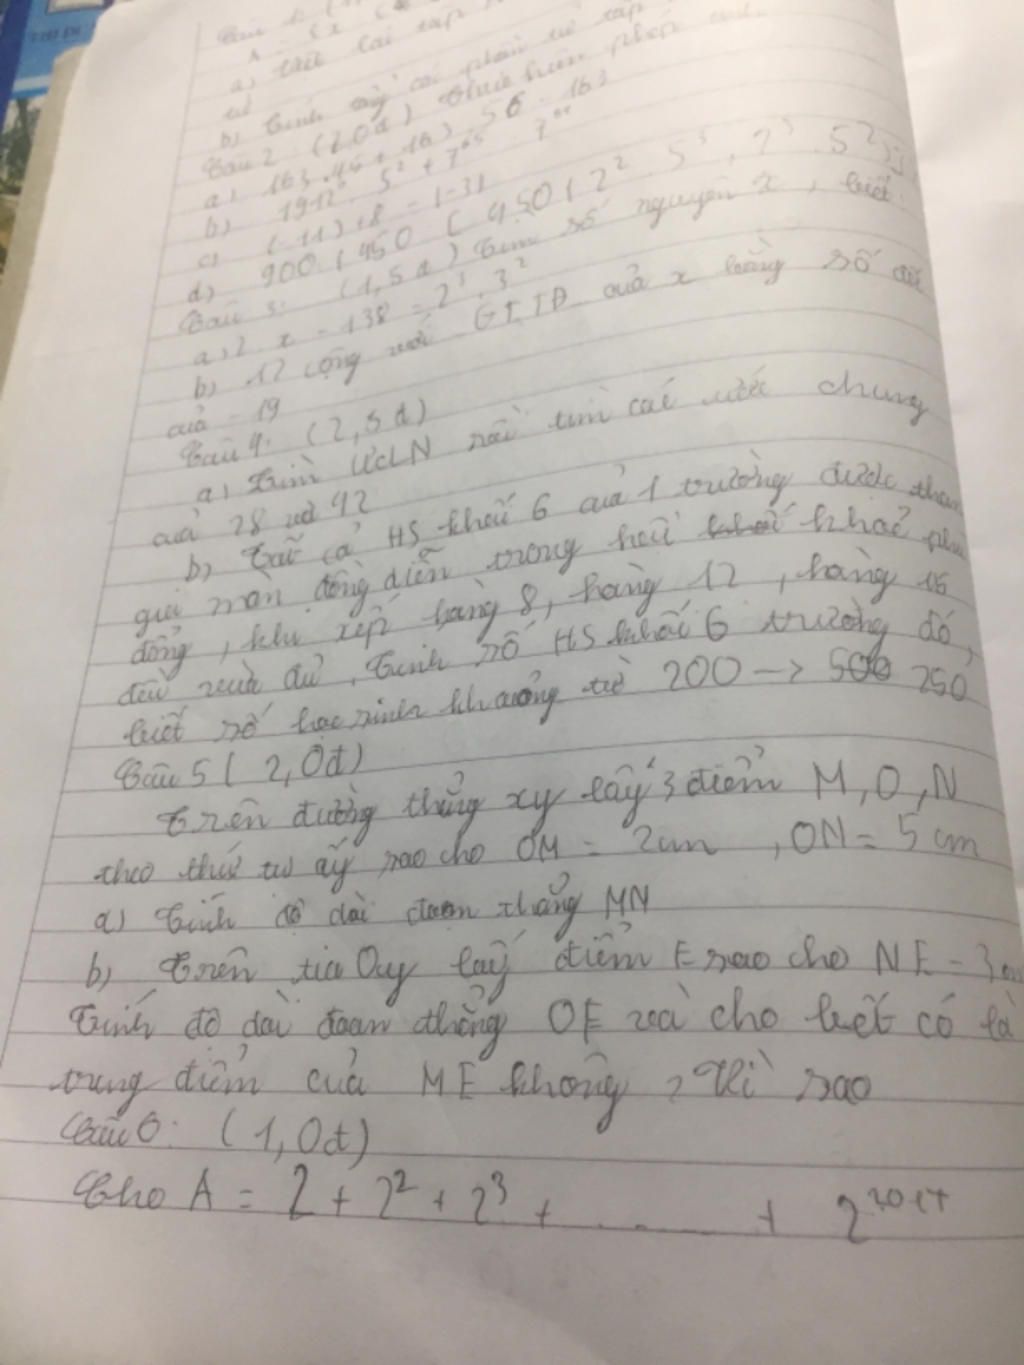 a) viết lại tập
b) Tính
Câu 2: (2,0đ) Thực hiện phép
a) 163.45 + 163.56 - 163
b) 5² +
c) (-11) + 8 - (-3)
d) 900:{450:[450:(2².5³:2³.5²)]}
Câu 3: (1,5đ) Tìm số nguyên x, biết:
a, 2x - 138 = 2³.3²
b) 12 cộng với GTTĐ của x bằng số đối
của -19
Câu 4: (2,5đ)
a, Tìm ƯCLN rồi tìm các ước chung
của 28 và 42
b, Tất cả HS khối 6 của 1 trường được tham
gia màn đồng diễn trong hội khoẻ phù
đổng, khi xếp hàng 8, hàng 12, hàng 15
đều vừa đủ. Tính số HS khối 6 trường đó,
biết số học sinh khoảng từ 200 → 250
Câu 5 (2,0đ)
Trên đường thẳng xy lấy 3 điểm M, O, N
theo thứ tự ấy sao cho OM = 2cm, ON = 5cm
a) Tính độ dài đoạn thẳng MN
b) Trên tia Oy lấy điểm E sao cho NE = 3cm
Tính độ dài đoạn thẳng OE và cho biết có là
trung điểm của ME không, Vì sao
Câu 6: (1,0đ)
Cho A = 2 + 2² + 2³ + ..... + 2²⁰¹⁷